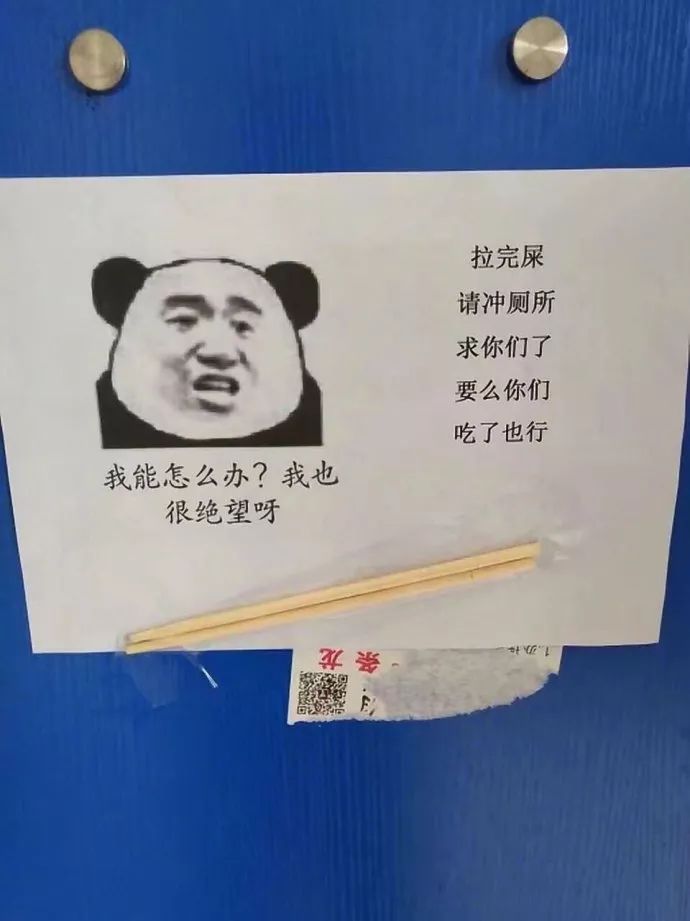 拉完屎
请冲厕所
求你们了
要么你们
吃了也行
我能怎么办？我也
很绝望呀
条龙